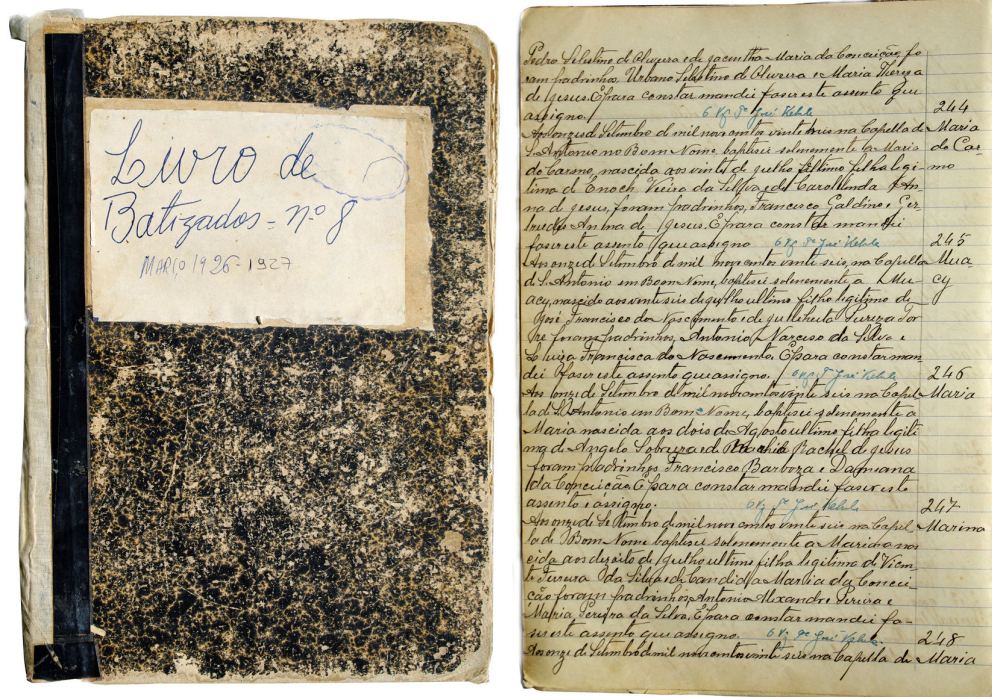 Livro de
Batizados - nº 8
MARÇO 1926 - 1927
Pedro Selestino de Oliveira e de Jacintha Maria da Conceição fo
ram padrinhos, Urbano Selestino de Oliveira e Maria Thereza
de Jesus. E para constar mandei faser este assento que
assigno.
José Kehrle
244
Aos onze de Setembro de mil novecentos vinte seis na Capella de
Maria
S. Antonio no Bom Nome, baptisei solemnemente a Maria
do Car
do Carmo, nascida aos vinte de Julho ultimo filha legi-
mo
tima de Enoch Vieira da Silva e de Carolinda An-
na de Jesus, foram padrinhos, Francisco Galdino e Ger-
trudes Anna de Jesus. E para constar mandei
faser este assento que assigno
José Kehrle
245
Aos onze de Setembro de mil novecentos vinte seis, na Capella
Mua
de S. Antonio em Bom Nome, baptisei solemnemente a Mu-
cy
acy, nascido aos vinte seis de Julho ultimo filho legitimo de
José Francisco do Nascimento e de Pereira
foram padrinhos, Antonio Narciso da Silva e
Luiza Francisca do Nascimento. E para constar man
dei faser este assento que assigno.
José Kehrle
246
Aos onze de Setembro de mil novecentos vinte seis na Capel
Maria
la de S. Antonio em Bom Nome, baptisei solemnemente a
Maria nascida aos dois de Agosto ultimo filha legiti
ma de Angelo e de Rachel de Jesus
foram padrinhos Francisco Barboza e Damiana
da Conceição E para constar mandei faser este
assento e assigno.
José Kehrle
247
Aos onze de Setembro de mil novecentos vinte seis na Capel
Marina
la de Bom Nome baptisei solemnemente a Marina nas
cida aos desoito de Julho ultimo filha legitima de Vicen
te Pereira da Silva e de Candida Maria da Concei
ção foram padrinhos, Antonio Alexandre Pereira e
Maria Pereira da Silva, E para constar mandei fa-
ser este assento que assigno.
José Kehrle
248
Aos onze de Setembro de mil novecentos vinte seis na Capella de
Maria